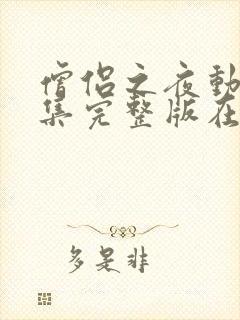 僧侣之夜動
集完整版在
多是非